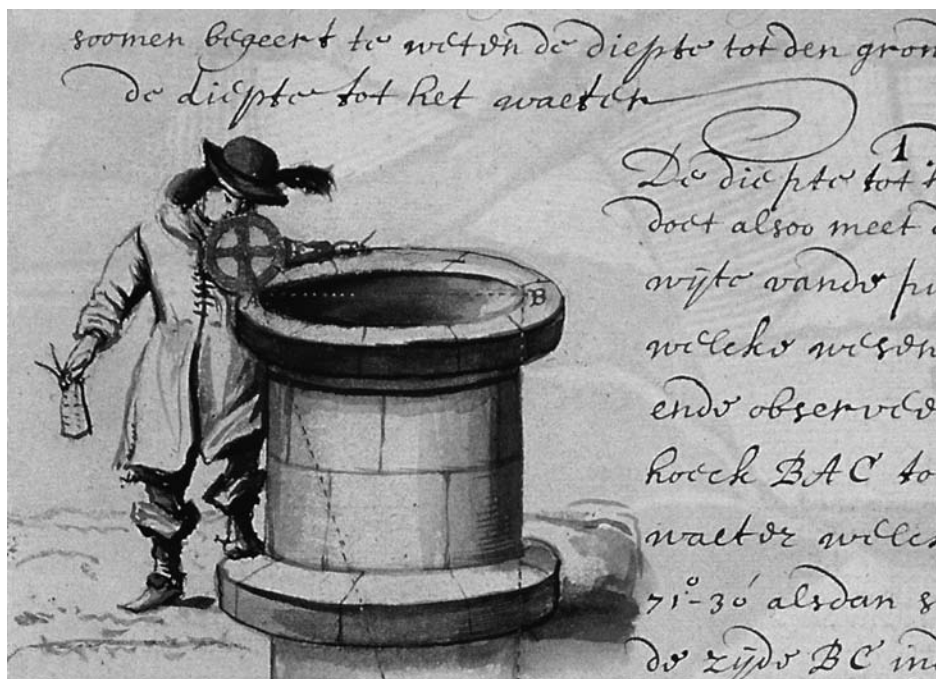 soomen begeert te weten de diepte tot den gron
de diepte tot het waeter
1
De diepte tot h
doet alsoo meet d
wijte vande pu
welcke wesen
B
ende observee
hoeck BAC to
waeter welck
71°-30' alsdan s
de zijde BC ind